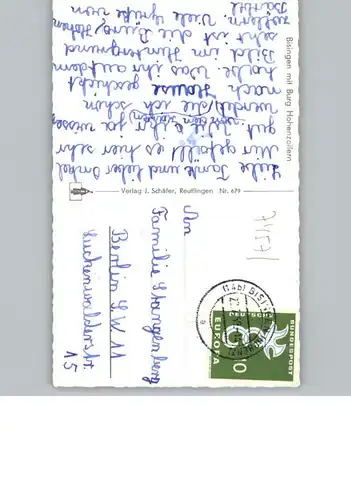 Bisingen mit Burg Hohenzollern
Liebe Tante und lieber Onkel
Mir gefällt es hier sehr
gut. Ihr ja wisst
von den Karten
werdet / die ich schon
nach Hause geschickt
habe. Was ihr auf dem
Bild im Hintergrund
seht ist die Burg Hohen
zollern. Viele Grüße von
Verlag J. Schäfer, Reutlingen Nr. 679
An
Familie Stangenberg
Berlin SW 11
Luckenwalderstr.
15
(14b) BISINGEN
DEUTSCHE BUNDESPOST
10
EUROPA